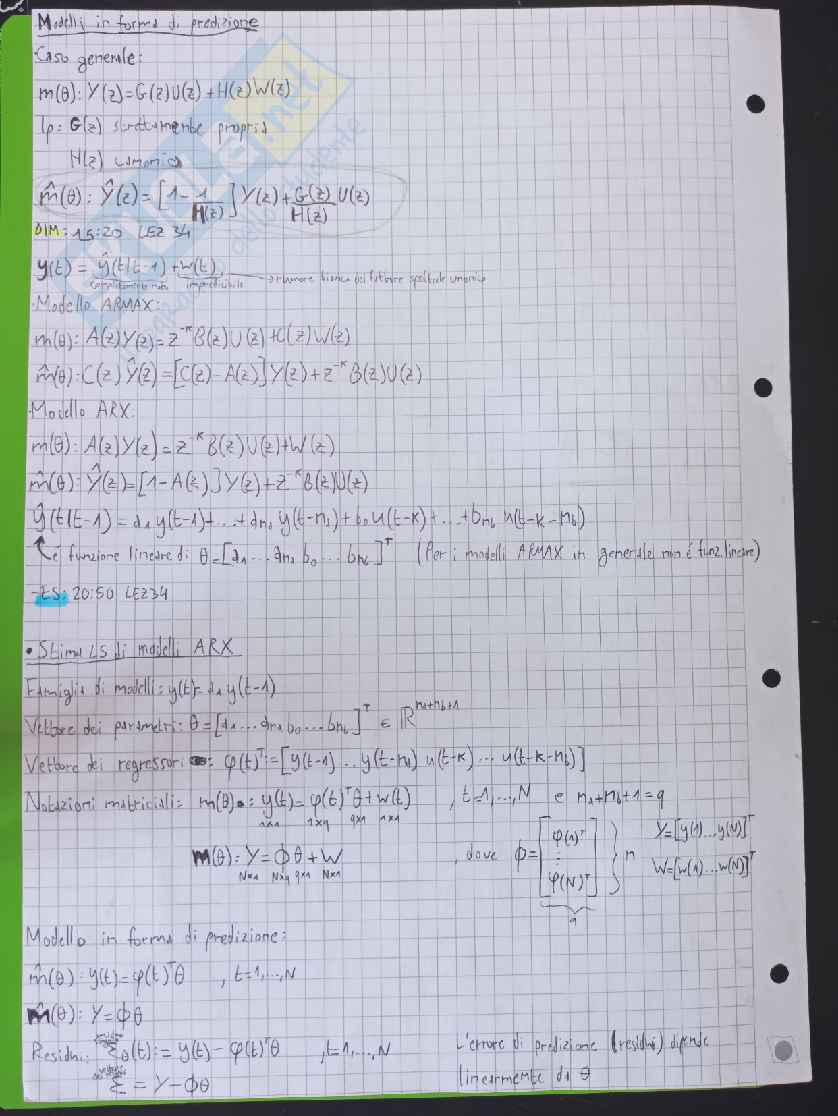 Modelli in forma di predizione
Caso generale:
m(θ): Y(z)=G(z)U(z)+H(z)W(z)
Ip: G(z) strettamente propria
H(z) canonica
m̂(θ): Ŷ(z)=[1-1/H(z)]Y(z)+G(z)/H(z) U(z)
DIM: 15:20 LEZ 34
y(t) = ŷ(t|t-1)+w(t) → rumore bianco del fattore spettrale canonico
completamente noto imprevedibile
·Modello ARMAX:
m(θ): A(z)Y(z)=z⁻ᴷB(z)U(z)+C(z)W(z)
m̂(θ): C(z)Ŷ(z)=[C(z)-A(z)]Y(z)+z⁻ᴷB(z)U(z)
·Modello ARX:
m(θ): A(z)Y(z)=z⁻ᴷB(z)U(z)+W(z)
m̂(θ): Ŷ(z)=[1-A(z)]Y(z)+z⁻ᴷB(z)U(z)
ŷ(t|t-1)=a₁y(t-1)+...+aₙₐy(t-nₐ)+b₀u(t-k)+...+bₙb u(t-k-nb)
è funzione lineare di θ=[a₁...aₙₐ b₀...bₙb]ᵀ (Per i modelli ARMAX in generale non è funz lineare)
-ES: 20:50 LEZ34
• Stima LS di modelli ARX
Famiglia di modelli: y(t)=a₁y(t-1)
Vettore dei parametri: θ=[a₁...aₙₐ b₀...bₙb]ᵀ ∈ ℝ^(na+nb+1)
Vettore dei regressori: φ(t)ᵀ:=[y(t-1)...y(t-na) u(t-k)...u(t-k-nb)]
Notazioni matriciali: m(θ): y(t)=φ(t)ᵀθ+w(t) , t=1,...,N e na+nb+1=q
1x1 1xq qx1 1x1
m(θ): Y=Φθ+W , dove Φ=[φ(1)ᵀ ⋮ φ(N)ᵀ]} n Y=[y(1)...y(N)]ᵀ
Nx1 Nxq qx1 Nx1 q W=[w(1)...w(N)]ᵀ
Modello in forma di predizione:
m̂(θ): y(t)=φ(t)ᵀθ , t=1,...,N
m̂(θ): Y=Φθ
Residui: Ɛθ(t):= y(t)-φ(t)ᵀθ , t=1,...,N L'errore di predizione (residui) dipende
Ɛ = Y-Φθ linearmente da θ